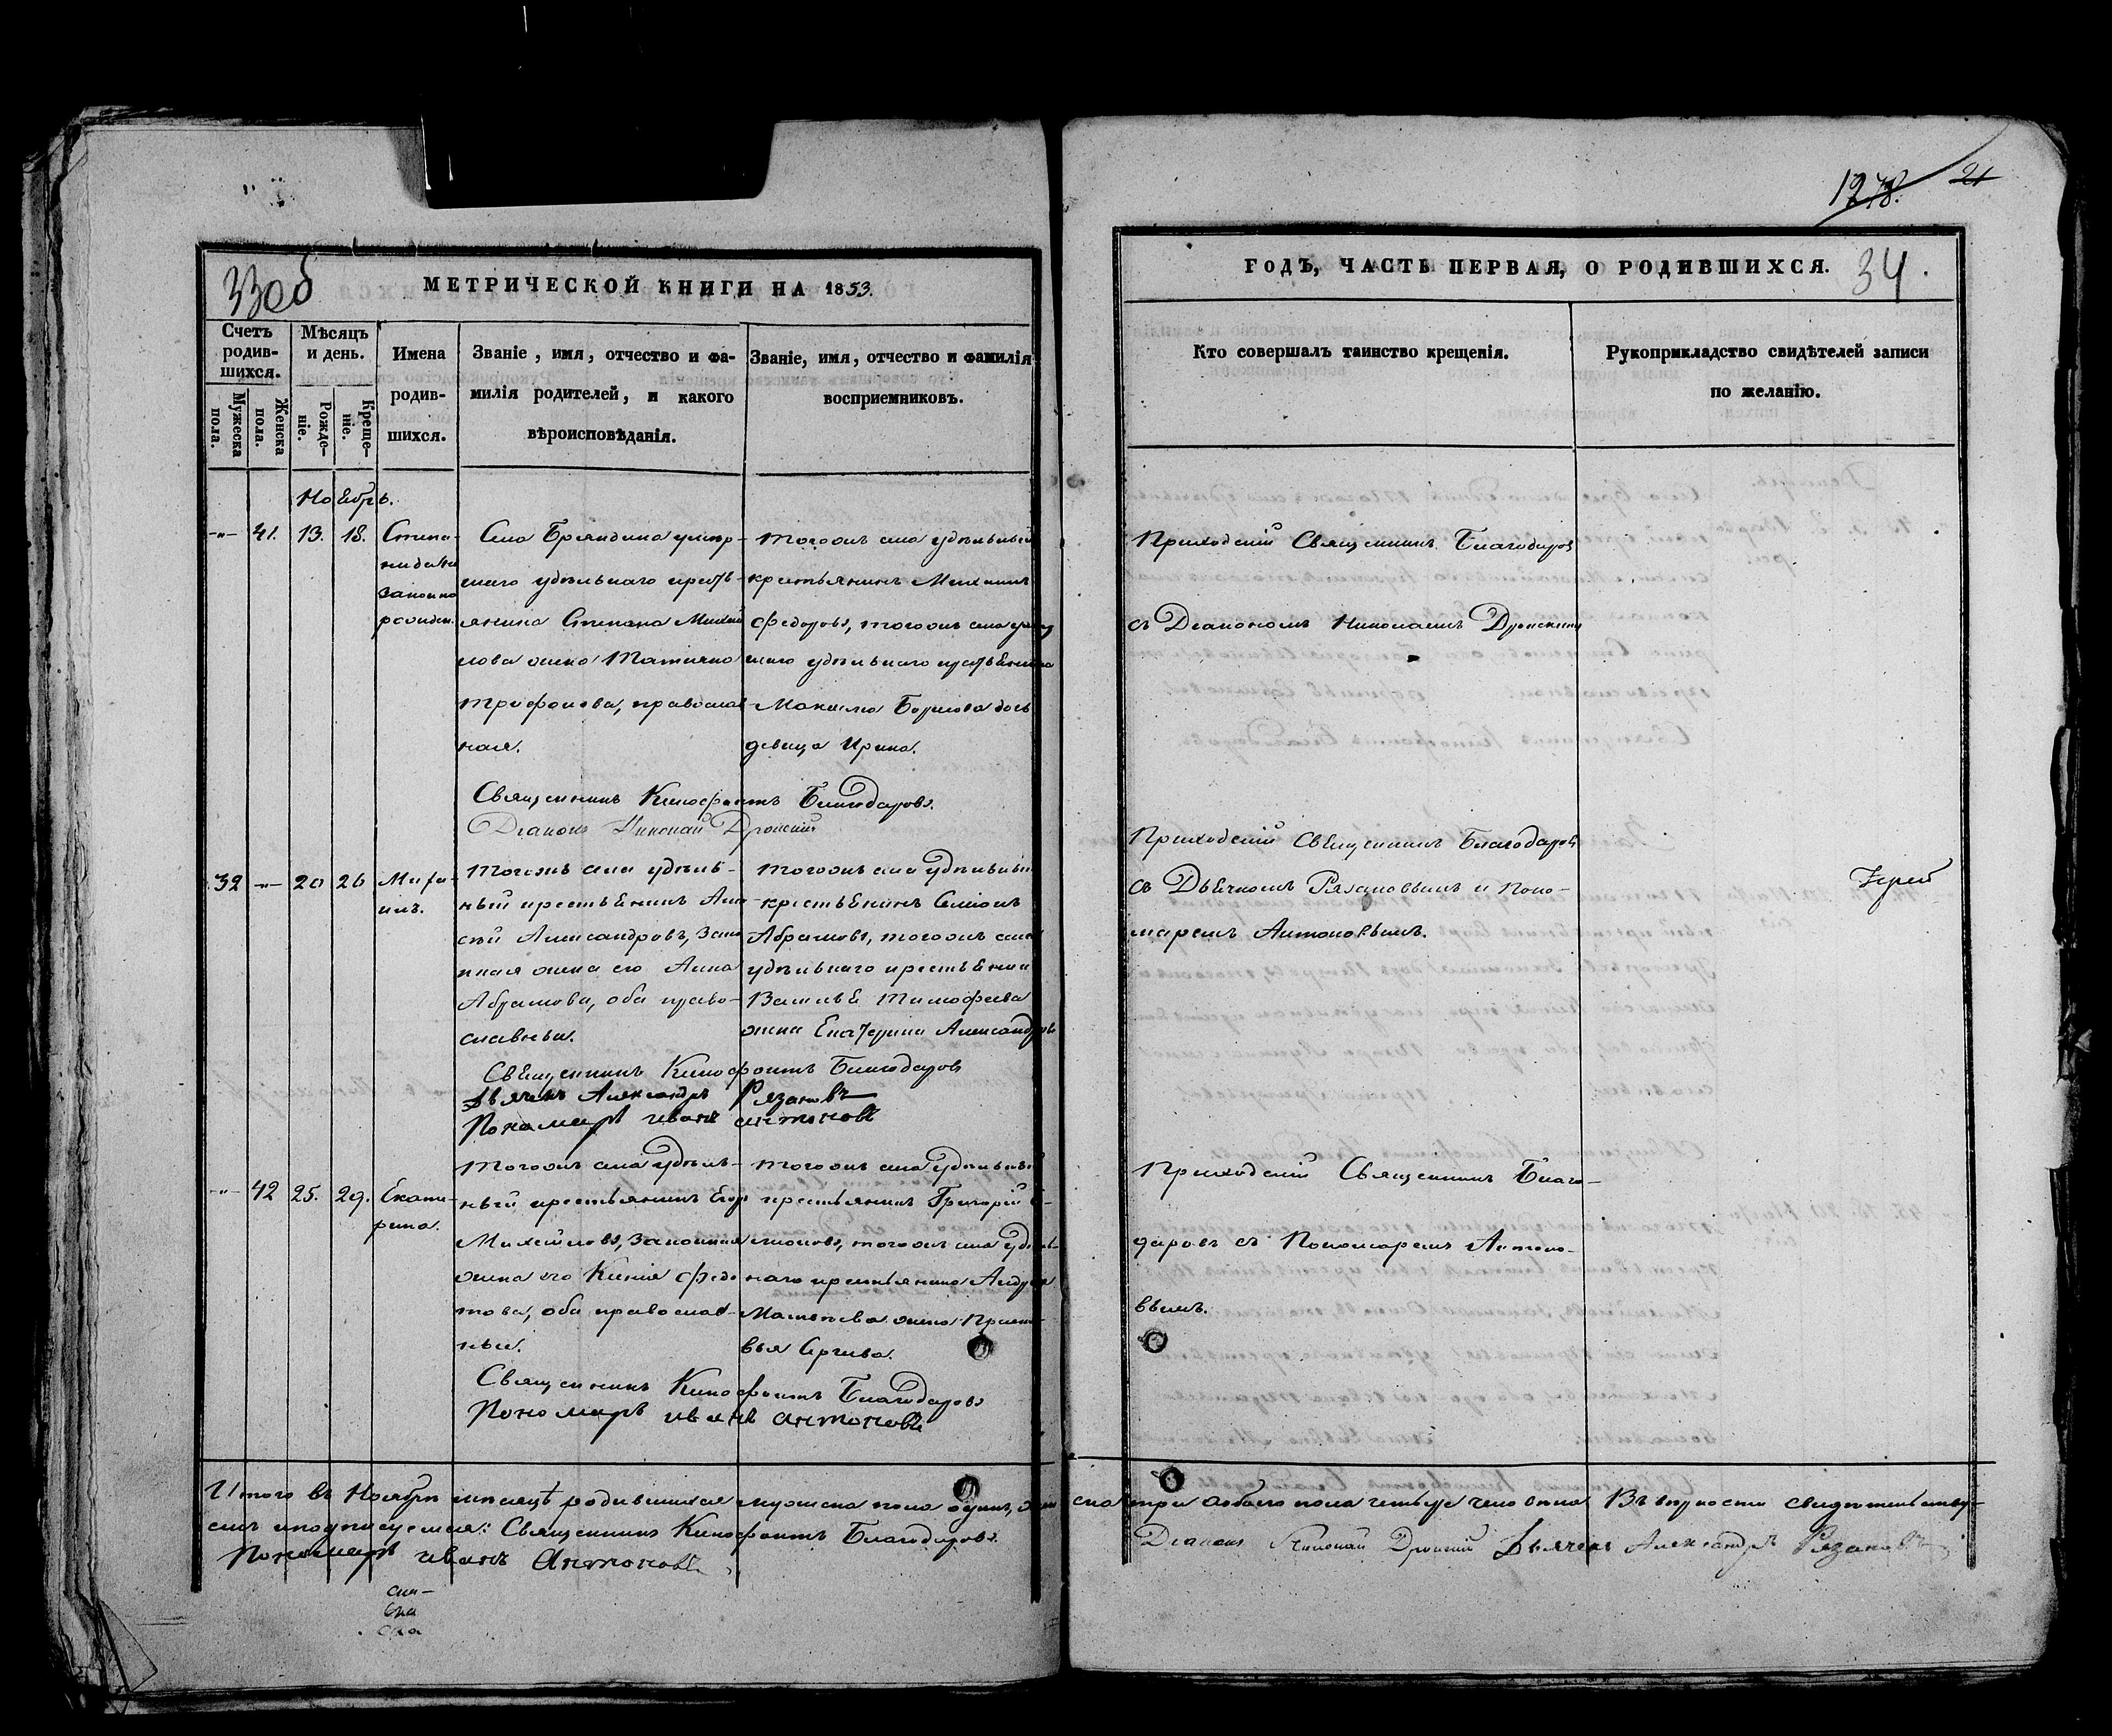 33об
МЕТРИЧЕСКОЙ КНИГИ НА 1853.
Счетъ родив-шихся.
Мѣсяцъ и день.
Имена родив-шихся.
Званіе, имя, отчество и фа-милія родителей, и какого вѣроисповѣданія.
Званіе, имя, отчество и фамилія воспріемниковъ.
Мужеска пола.
Женска пола.
Рожде-ніе.
Креще-ніе.
Ноябрь.
-"- 41. 13. 18.
Степа-
нида не
законно
рожден.
Села Брандина умер-
шаго удѣльнаго кресть-
янина Степана Михай
лова жена Татьяна
Трифонова, православ
ная.
тогожъ села удѣльный
крестьянинъ Михаилъ
Федоровъ, тогожъ села умер
шаго удѣльнаго крестьянина
Борисова дочь
девица Ирина.
Священникъ Ксенофонтъ Благодаровъ.
Діаконъ Николай Дронскій
32 -"- 20 26
тогожъ села удѣль-
ный крестьянинъ Але-
ксѣй Александровъ, Зако
нная жена его Анна
Абрамова, оба право-
славные.
тогожъ села удѣльный
крестьянинъ Симіонъ
Абрамовъ, тогожъ села
удѣльнаго крестьянина
Василья Тимофеева
жена Екатерина Александров
Священникъ Ксенофонтъ Благодаровъ
Дьячекъ Александръ Рязановъ
Пономарь иванъ антоновъ
-"- 42 25. 29.
Екате-
рина.
тогожъ села удѣль-
ный крестьянинъ Егоръ
Михайловъ, законная
жена его Ксенія Федо
това, оба православ-
ные.
тогожъ села удѣльный
крестьянинъ Григорій С-
міоновъ, тогожъ села удѣль-
наго крестьянина Андрея
Матвѣева жена Праско-
вья Сергеева.
Священникъ Ксенофонтъ Благодаровъ
Пономарь иванъ антоновъ
Итого въ Ноябрѣ мѣсяцѣ родившихся мужеска пола одинъ, жен
Священникъ Ксенофонтъ Благодаровъ.
Пономарь иванъ Антоновъ
ска
1278. 21
ГОДЪ, ЧАСТЬ ПЕРВАЯ, О РОДИВШИХСЯ. 34.
Кто совершалъ таинство крещенія.
Рукоприкладство свидѣтелей записи по желанію.
Приходскій Священникъ Благодаровъ
съ Діакономъ Николаемъ Дронскимъ
Приходскій Священникъ Благодаровъ
съ Дьячкомъ Рязановымъ и Поно-
маремъ Антоновымъ.
Приходскій Священникъ Благо-
даровъ съ Пономаремъ Антоно-
вымъ.
ска три обоего пола четыре человека Въ верности свидетельству-
Діаконъ Николай Дронскій Дьячекъ Александръ Рязановъ